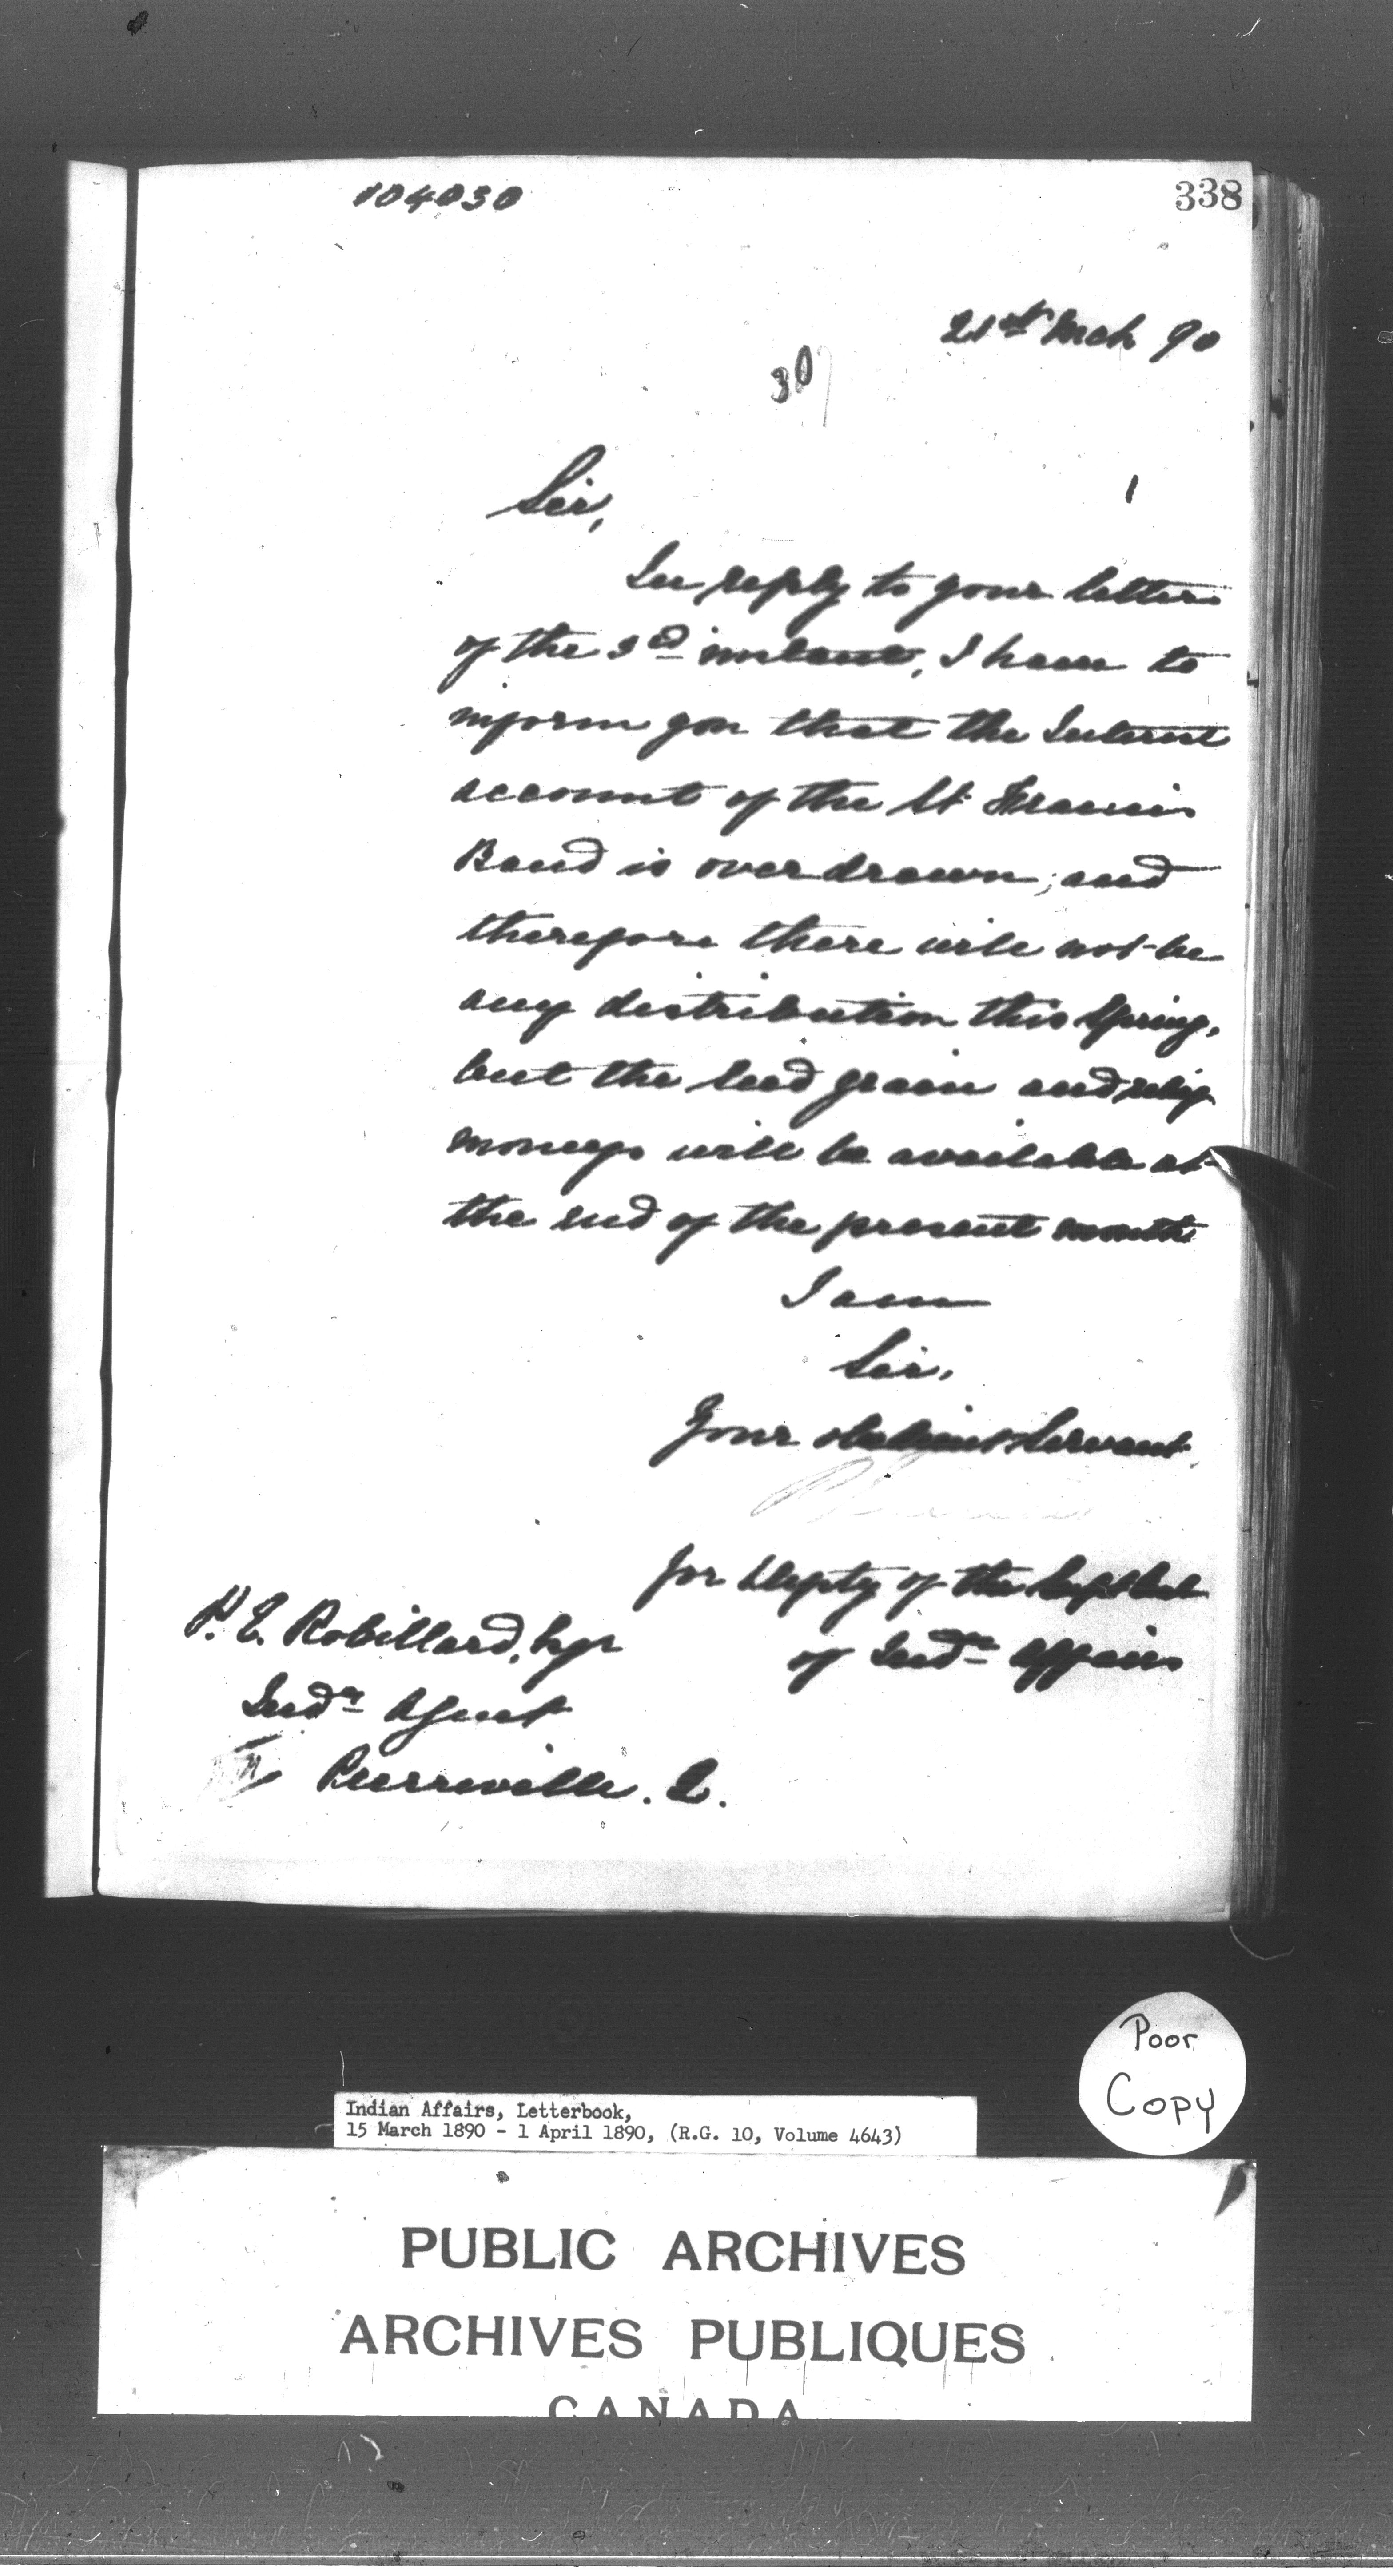 104030
338
21st Mch 90
307
Sir,
In reply to your letter
of the 3d instant, I have to
inform you that the Interest
account of the St. Francis
Band is overdrawn, and
therefore there will not be
any distribution this Spring,
but the seed grain and relief
moneys will be available at
the end of the present month
I am
Sir,
Your obedient Servant
for Depty of the Supt Genl
of Indn Affairs
P. E. Robillard, Esqr
Indn Agent
Pierreville. Q.
Poor
Copy
Indian Affairs, Letterbook,
15 March 1890 - 1 April 1890, (R.G. 10, Volume 4643)
PUBLIC ARCHIVES
ARCHIVES PUBLIQUES
CANADA